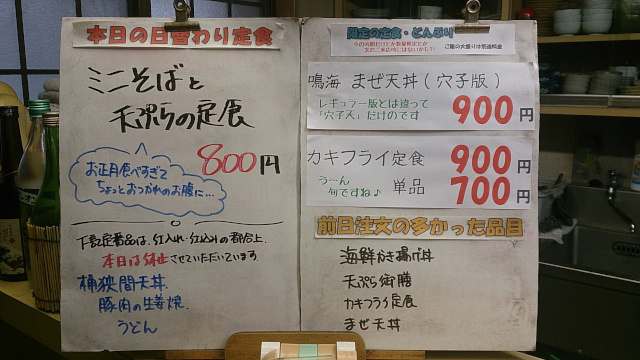 本日の日替わり定食
ミニそばと
天ぷらの定食
800円
お正月食べすぎて
ちょっとおつかれのお腹に…
下記定番品は、仕入れ・仕込みの都合上、
本日は休止させていただいています
桶狭間天丼
豚肉の生姜焼
うどん
限定の定食・どんぶり
ご飯の大盛りは別途料金
鳴海 まぜ天丼(穴子版)
レギュラー版とは違って
「穴子天」だけのです
900円
カキフライ定食 900円
う〜ん
旬ですね♪ 単品 700円
前日注文の多かった品目
海鮮かき揚げ丼
天ぷら御膳
カキフライ定食
まぜ天丼